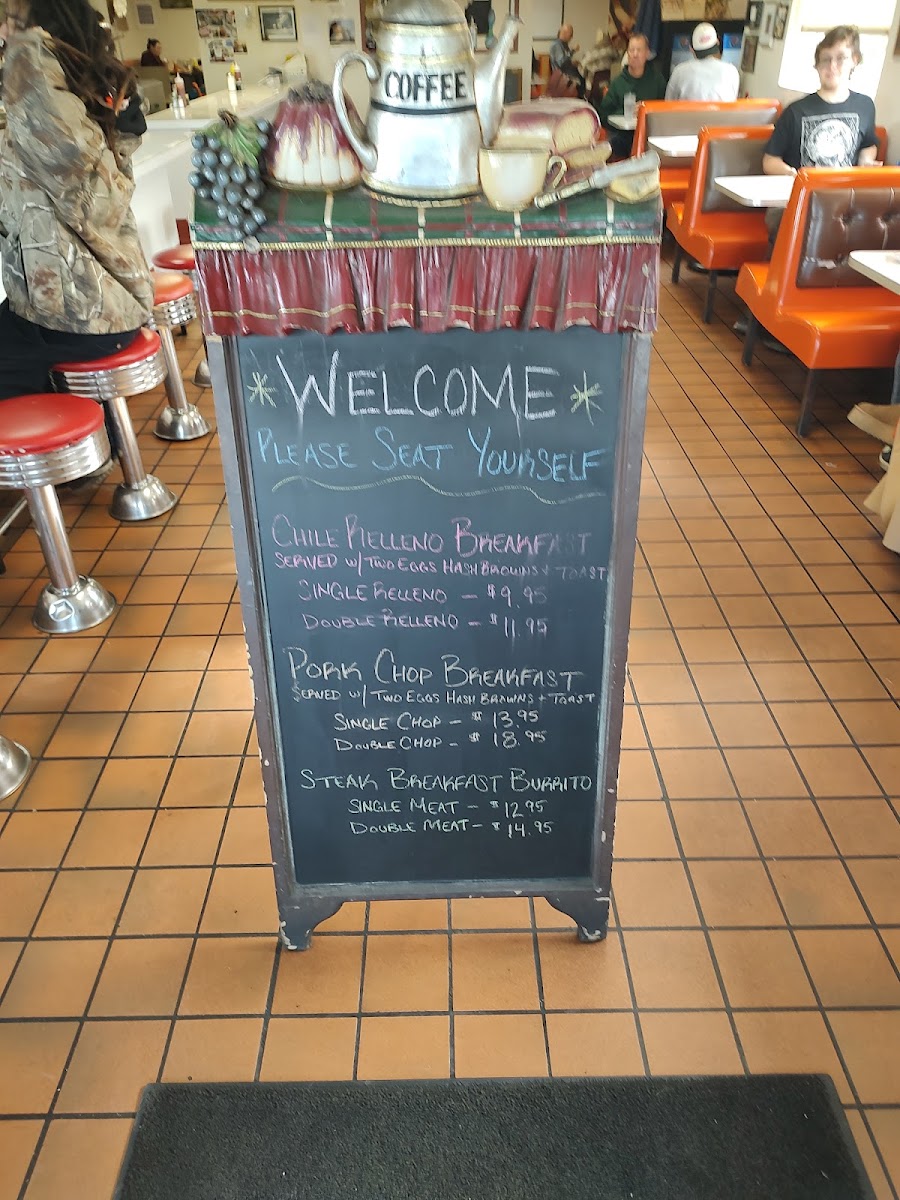 COFFEE
WELCOME
PLEASE SEAT YOURSELF
CHILE RELLENO BREAKFAST
SERVED W/ TWO EGGS HASH BROWNS + TOAST
SINGLE RELLENO - $9.95
DOUBLE RELLENO - $11.95
PORK CHOP BREAKFAST
SERVED W/ TWO EGGS HASH BROWNS + TOAST
SINGLE CHOP - $13.95
DOUBLE CHOP - $18.95
STEAK BREAKFAST BURRITO
SINGLE MEAT - $12.95
DOUBLE MEAT - $14.95